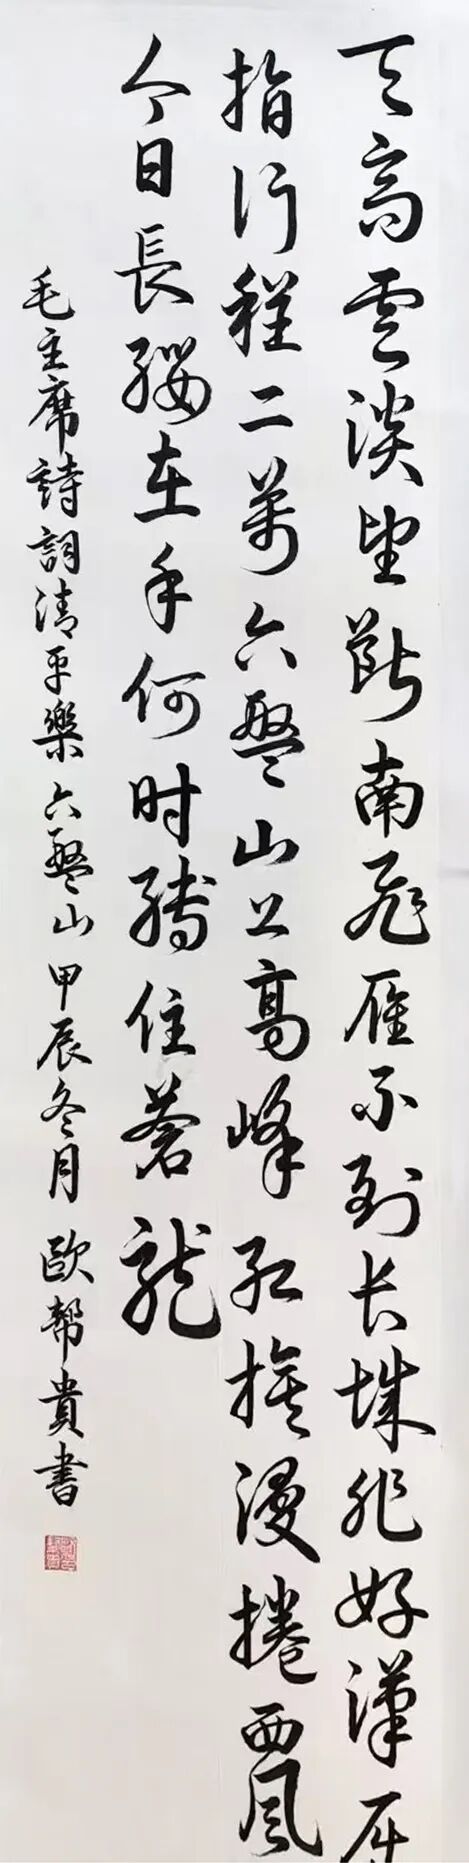 天高雲淡望斷南飛雁不到长城非好漢屈
指行程二萬六盤山上高峰紅旗漫捲西風
今日長纓在手何时縛住蒼龍
毛主席詩詞清平樂六盤山甲辰冬月歐幫貴書